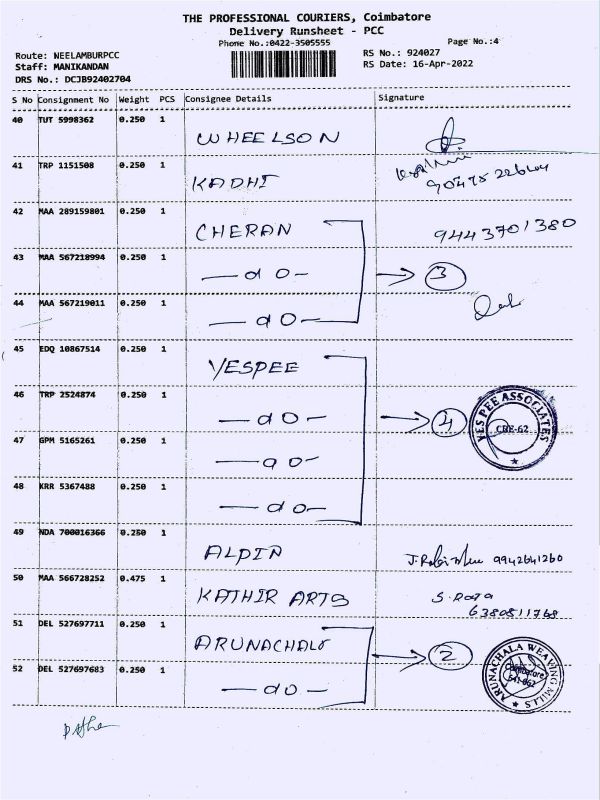 THE PROFESSIONAL COURIERS, Coimbatore
Delivery Runsheet - PCC
Phone No.:0422-3505555
Page No.:4
Route: NEELAMBURPCC
RS No.: 924027
Staff: MANIKANDAN
RS Date: 16-Apr-2022
DRS No.: DCJB92402704
S No Consignment No Weight PCS Consignee Details Signature
40 TUT 5998362 0.250 1 WHEELSON
41 TRP 1151508 0.250 1 KADHI
42 MAA 289159801 0.250 1 CHERAN 9443701380
43 MAA 567218994 0.250 1 — do — 3
44 MAA 567219011 0.250 1 — do —
45 EDQ 10867514 0.250 1 YESPEE
46 TRP 2524874 0.250 1 — do — 4 YES PEE ASSOCIATES CBE-62
47 GPM 5165261 0.250 1 — do —
48 KRR 5367488 0.250 1 — do —
49 NDA 700016366 0.250 1 ALPIN 9942641260
50 MAA 566728252 0.475 1 KATHIR ARTS S. Roja
6380511768
51 DEL 527697711 0.250 1 ARUNACHALA 2
52 DEL 527697683 0.250 1 — do — ARUNACHALA WEAVING MILLS Coimbatore 641-062